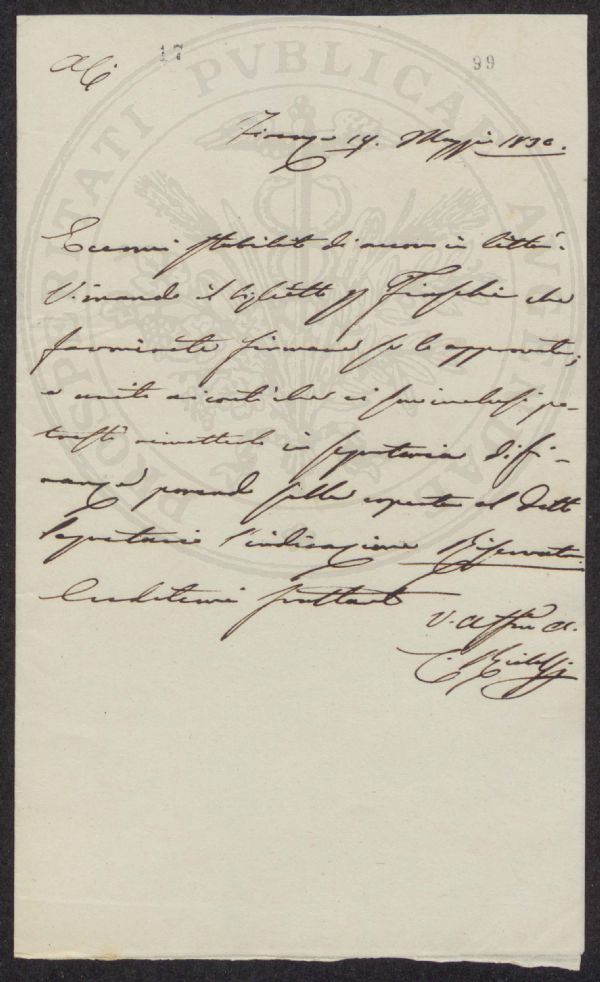 A. C.
17
99
PROSPERITATI PVBLICAE AVGENDAE
Firenze 19. Maggio 1836.
Eccomi stabilito di nuovo in città.
Vi mando il biglietto p Fiaschi che
favorirete firmare se lo approvate;
e unito ai conti che vi sono inclusi po-
treste rimetterlo in segreteria di fi-
nanze ponendo sulla coperta al detto
Segretario l'indicazione Riservata.
Credetemi frattanto
V. Affmo A.
C. Ridolfi